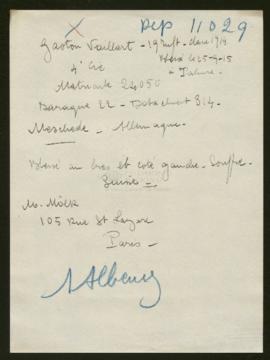 X DCP 11029
Gaston Vaillart - 19 Inft - classe 1914
Blessé le 25-9-15
4e Cie à Tahure -
Matricule 24050
Baraque 22 - Détachemt 314 -
Meschede - Allemagne -
Blessé au bras et coté gauche - Souffre -
Suisse -
M. Mölk
105 Rue St Lazare
Paris -